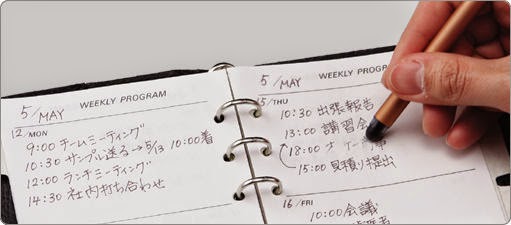 5/MAY WEEKLY PROGRAM
12/MON
9:00 チームミーティング
10:30 サンプル送る→5/13 10:00着
12:00 ランチミーティング
14:30 社内打ち合わせ
5/MAY WEEKLY PROGRAM
15/THU
10:30 出張報告
13:00 講習会
18:00
15:00 見積り提出
16/FRI
10:00 会議